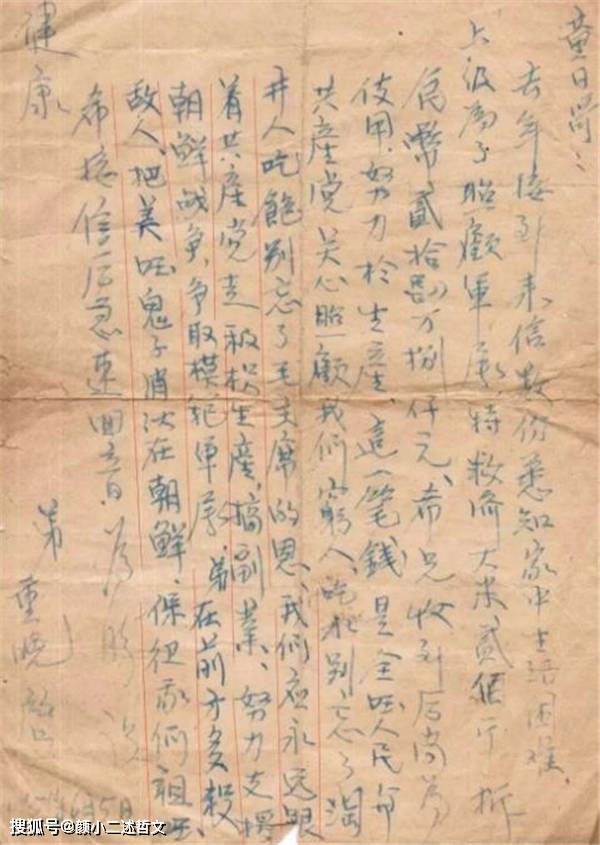 黄日
去年接到来信数份悉知家中生活困难、
上级为了照顧軍属特救济大米贰佰斤折
民幣贰拾万捌仟元、希兄收到后当为
使用、努力於生産、這一笔錢是全国人民和
共産党关心照顧我们窮人、吃水别忘了淘
井人吃飽别忘了毛主席的恩、我们应永远跟
着共産党走积极生産,搞副業、努力支援
朝鮮战争、争取模范軍属,弟在前方多殺
敌人、把美国鬼子消灭在朝鮮、保衛我们祖国、
希接信后急速回音、为盼 祝
健康
弟 重晓
5日
搜狐号@颜小二述哲文